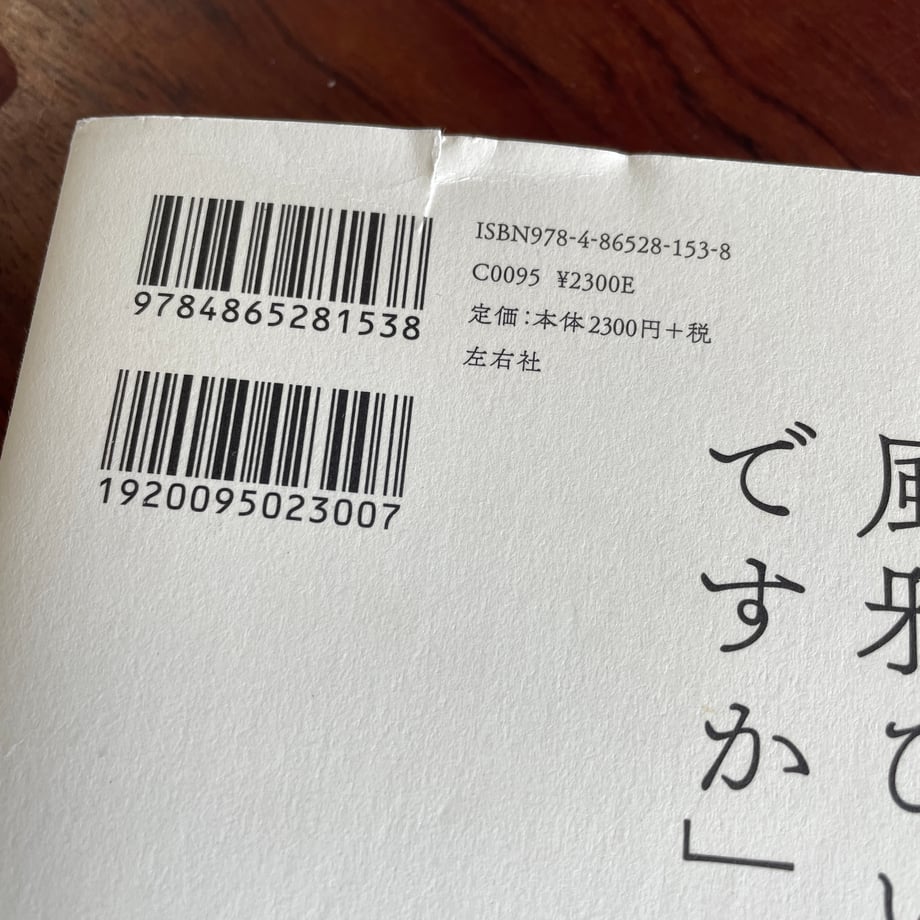 9784865281538
ISBN978-4-86528-153-8
C0095 ¥2300E
定価：本体2300円＋税
左右社
1920095023007
風邪ひ
ですか」